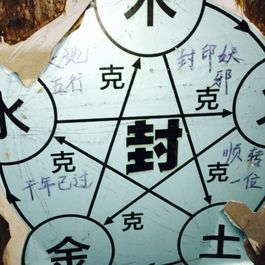 木
天地
五行
封印妖
邪
克
克
水
火
封
克
克
顺转
一位
千年已过
克
金
土